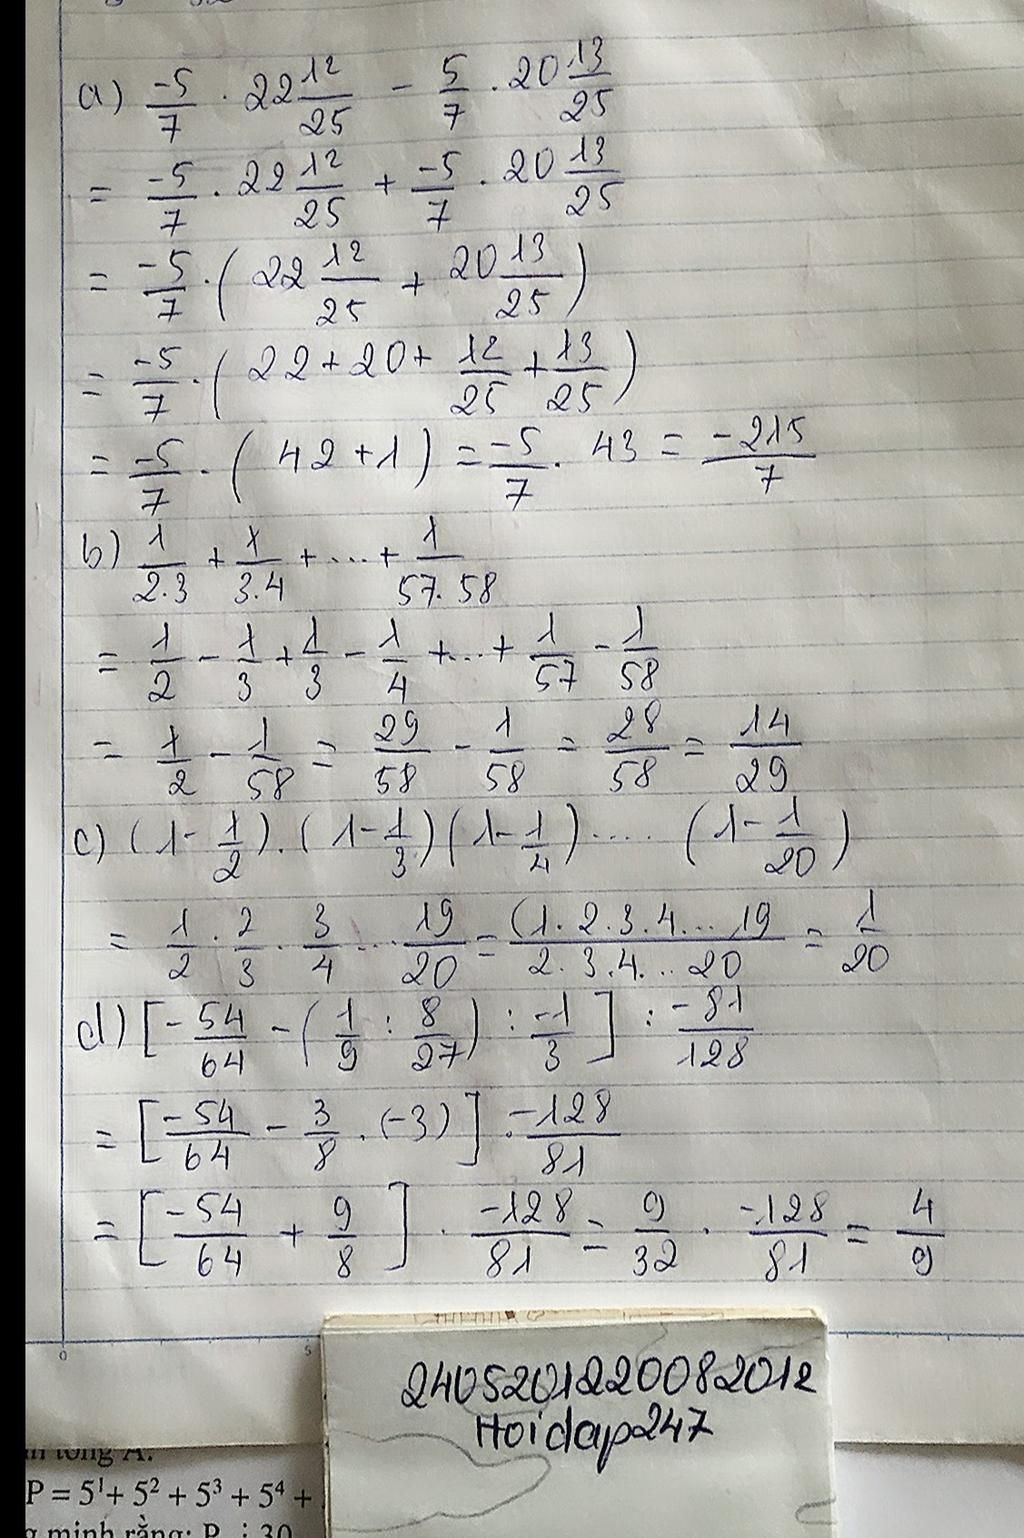 a) -5/7 . 22 12/25 - 5/7 . 20 13/25
= -5/7 . 22 12/25 + -5/7 . 20 13/25
= -5/7 . ( 22 12/25 + 20 13/25 )
= -5/7 . ( 22 + 20 + 12/25 + 13/25 )
= -5/7 . ( 42 + 1 ) = -5/7 . 43 = -215/7
b) 1/2.3 + 1/3.4 + ... + 1/57.58
= 1/2 - 1/3 + 1/3 - 1/4 + ... + 1/57 - 1/58
= 1/2 - 1/58 = 29/58 - 1/58 = 28/58 = 14/29
c) (1 - 1/2) . (1 - 1/3) (1 - 1/4) ..... (1 - 1/20)
= 1/2 . 2/3 . 3/4 ... 19/20 = (1.2.3.4... 19/2.3.4...20 = 1/20
d) [ - 54/64 - ( 1/9 : 8/27 ) : -1/3 ] : -81/128
= [ -54/64 - 3/8 . (-3) ] . -128/81
= [ -54/64 + 9/8 ] . -128/81 = 9/32 . -128/81 = 4/9
0 5
2405201220082012
Hoidap247
tổng A.
P = 5¹ + 5² + 5³ + 5⁴ +
minh rằng: P ⋮ 30